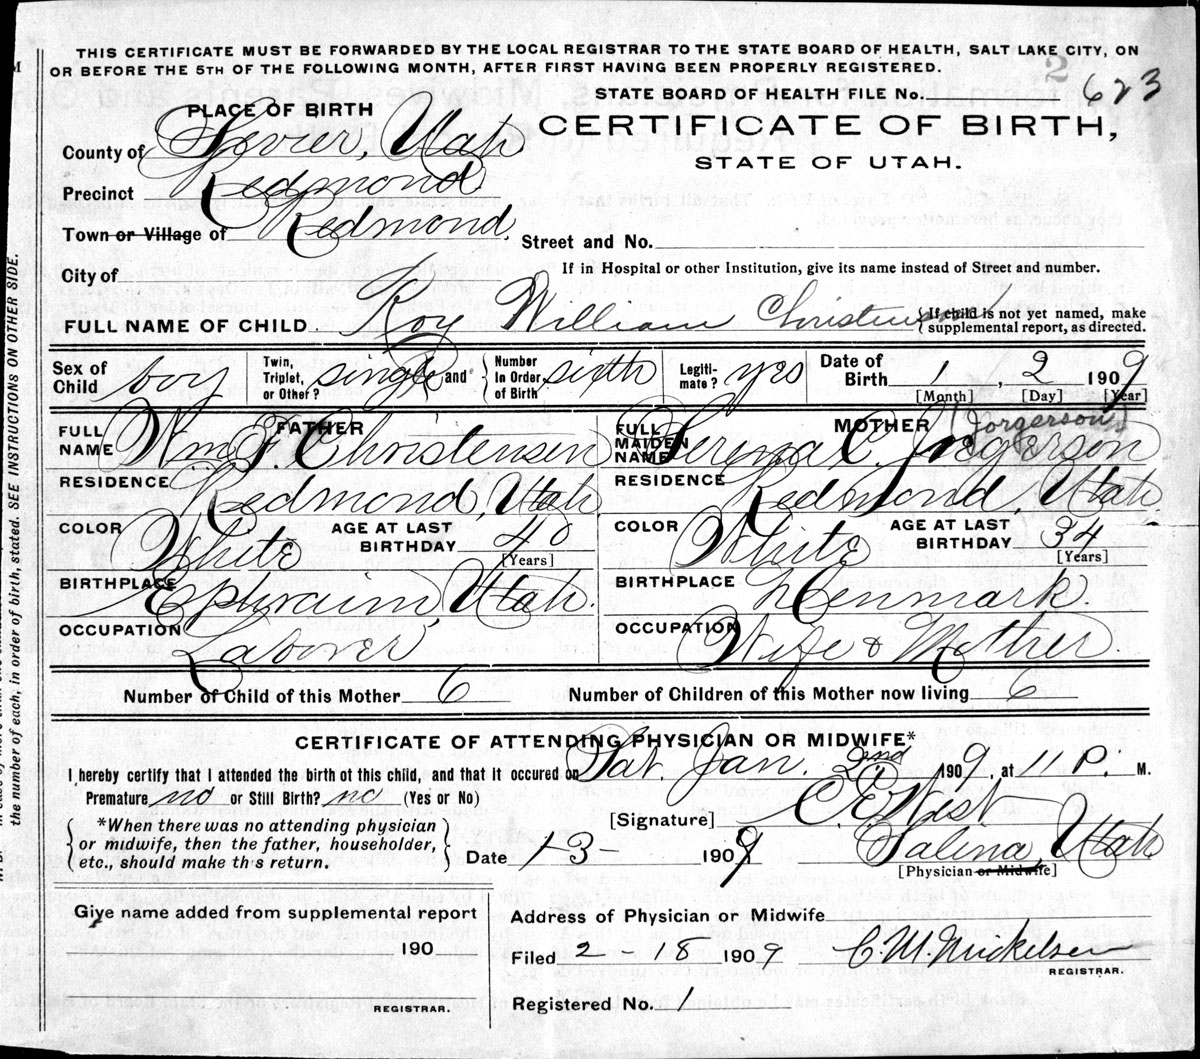 THIS CERTIFICATE MUST BE FORWARDED BY THE LOCAL REGISTRAR TO THE STATE BOARD OF HEALTH, SALT LAKE CITY, ON
OR BEFORE THE 5TH OF THE FOLLOWING MONTH, AFTER FIRST HAVING BEEN PROPERLY REGISTERED.
2
STATE BOARD OF HEALTH FILE No. 623
PLACE OF BIRTH
CERTIFICATE OF BIRTH,
STATE OF UTAH.
County of Sevier, Utah
Precinct Redmond
Town or Village of Redmond.
Street and No.
City of
If in Hospital or other Institution, give its name instead of Street and number.
FULL NAME OF CHILD Roy William Christensen
{If child is not yet named, make
supplemental report, as directed.
Sex of Child boy
Twin, Triplet, or Other? single and {Number In Order of Birth sixth
Legitimate? yes
Date of Birth 1, 2 1909
[Month] [Day] [Year]
FATHER
FULL NAME Wm F. Christensen
MOTHER
FULL MAIDEN NAME Serena C. Jorgerson
(Jorgerson)
RESIDENCE Redmond, Utah
RESIDENCE Redmond, Utah
COLOR White AGE AT LAST BIRTHDAY 40 [Years]
COLOR White AGE AT LAST BIRTHDAY 34 [Years]
BIRTHPLACE Ephraim, Utah.
BIRTHPLACE Denmark.
OCCUPATION Laborer
OCCUPATION Wife & Mother.
Number of Child of this Mother 6 Number of Children of this Mother now living 6
CERTIFICATE OF ATTENDING PHYSICIAN OR MIDWIFE*
I hereby certify that I attended the birth of this child, and that it occured on Sat. Jan. 2nd 1909, at 11 P. M.
Premature no or Still Birth? no (Yes or No)
{*When there was no attending physician
or midwife, then the father, householder,
etc., should make this return.}
[Signature] C E West
Date 1-3- 1909
Salina, Utah.
[Physician or Midwife]
Give name added from supplemental report
190
REGISTRAR.
Address of Physician or Midwife
Filed 2-18 1909 C. M. Mickelsen
REGISTRAR.
Registered No. 1
the number of each, in order of birth, stated. SEE INSTRUCTIONS ON OTHER SIDE.